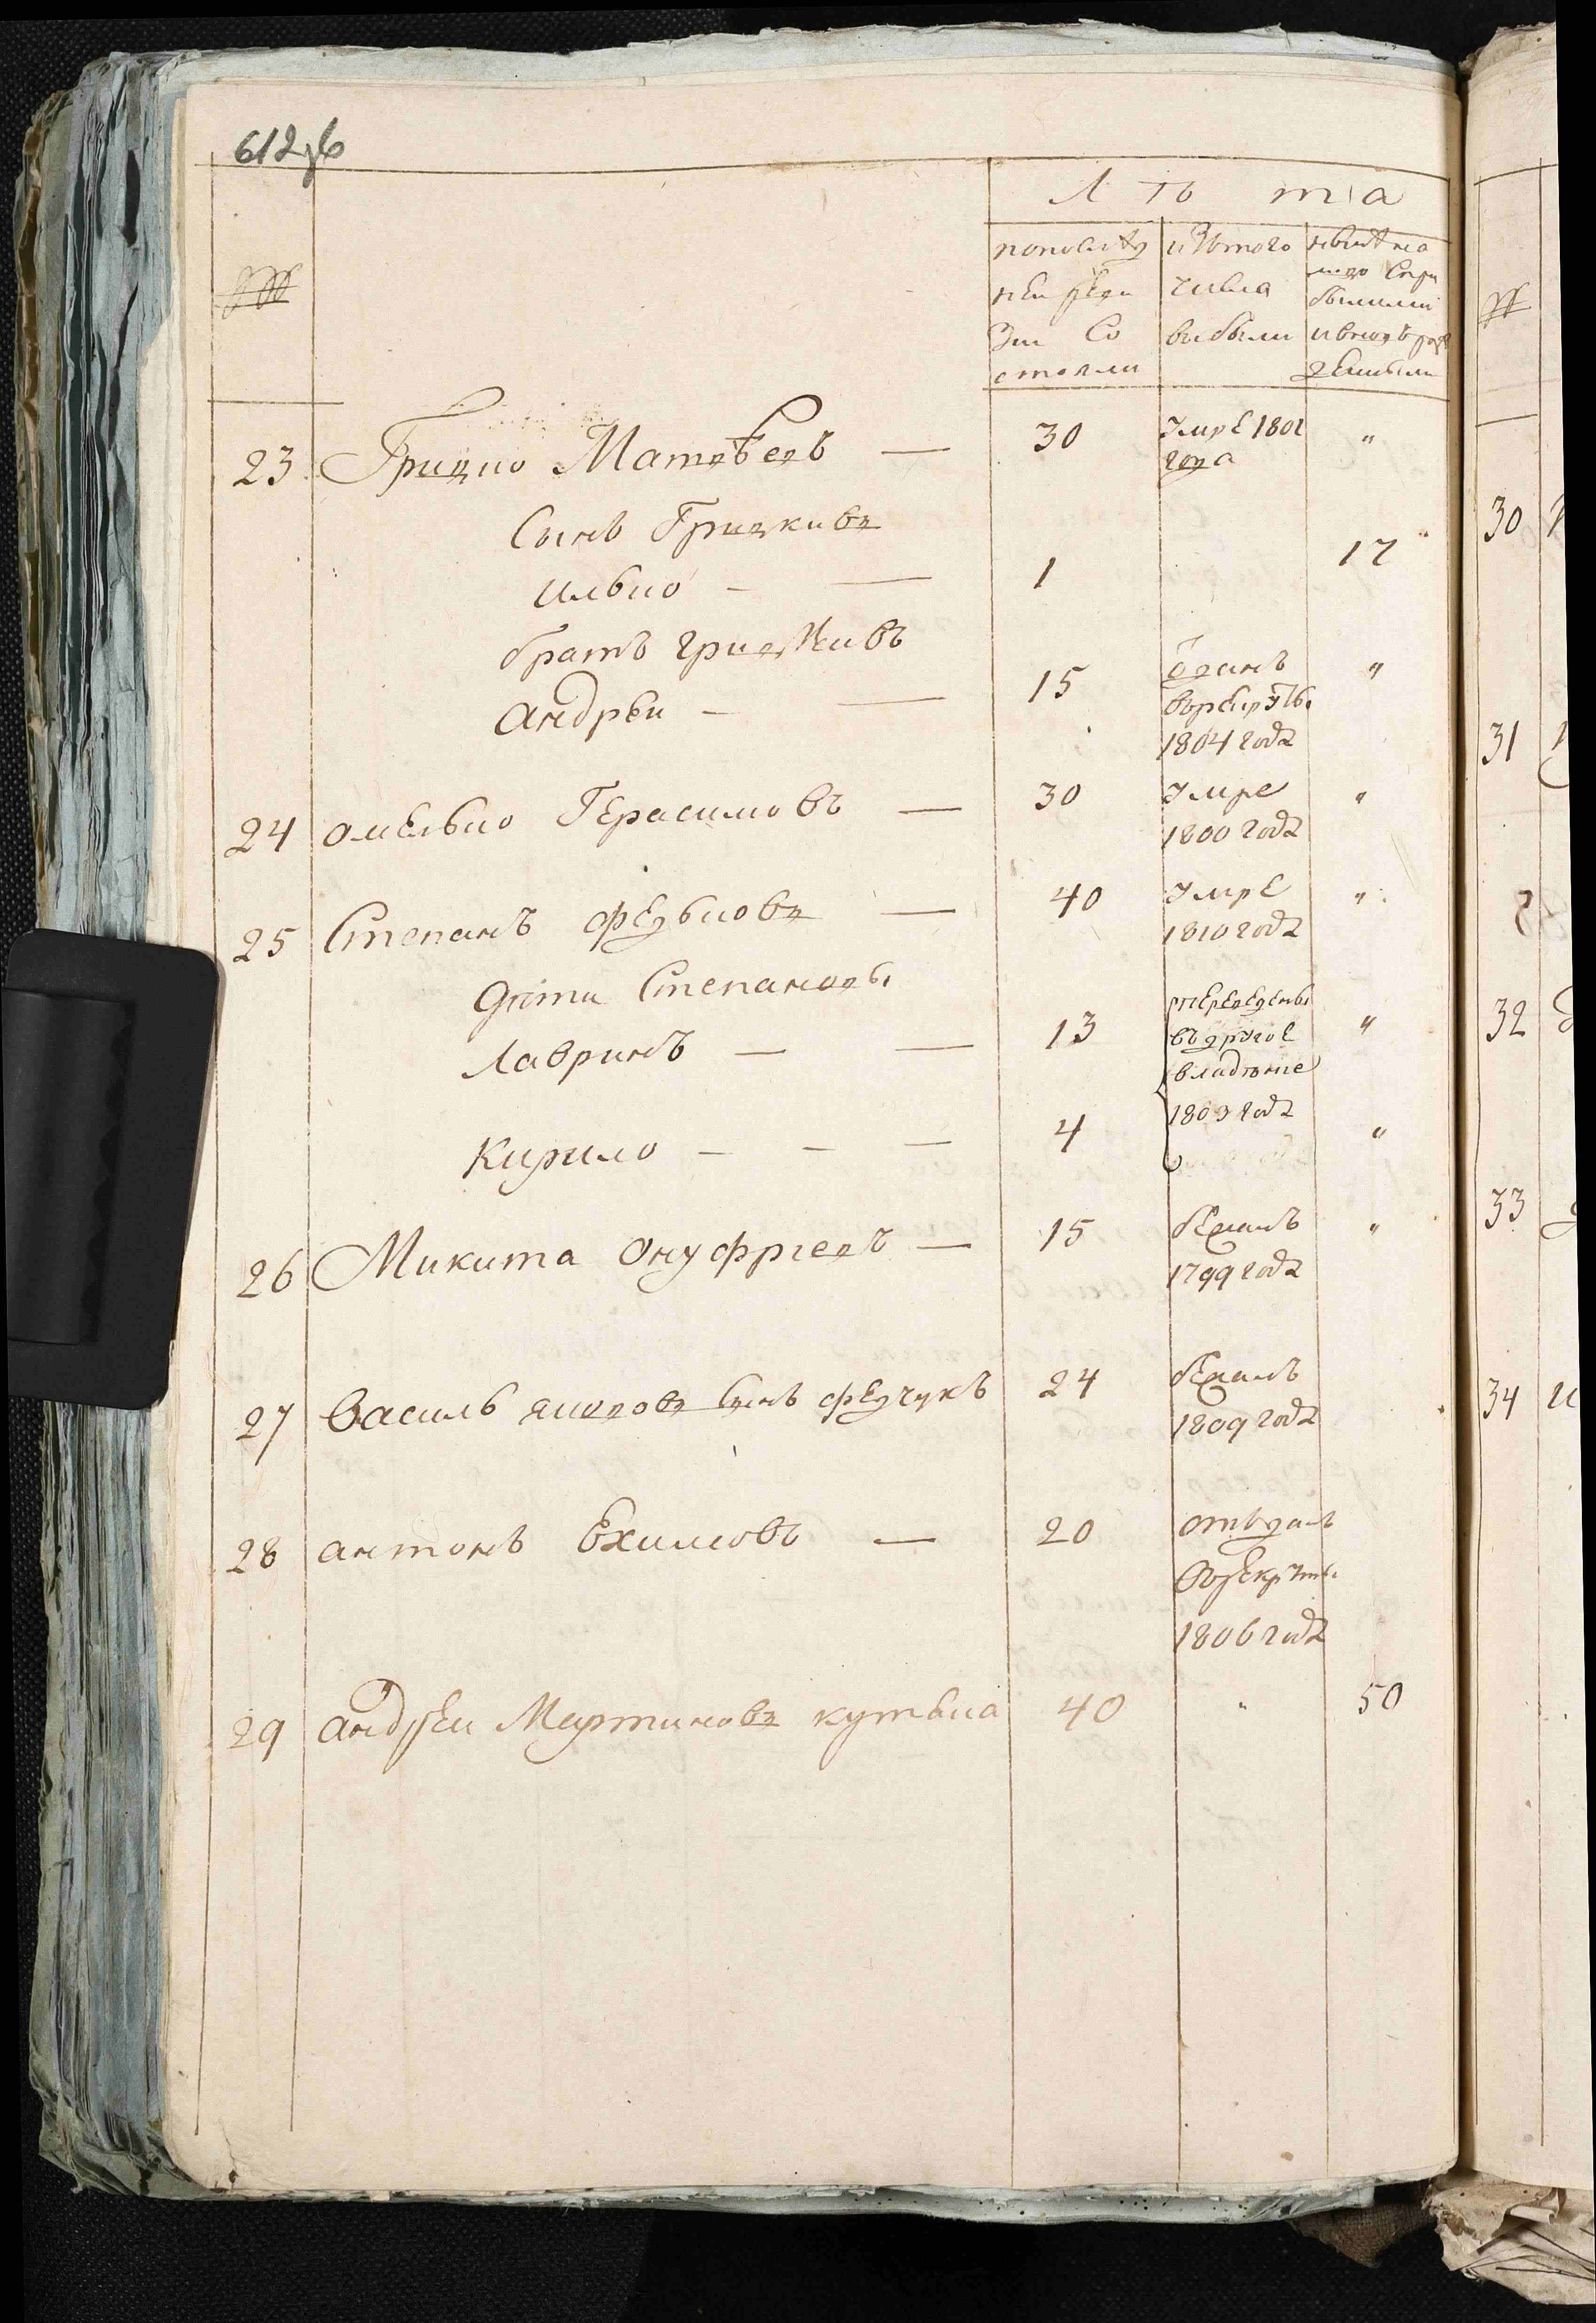 612
Лѣта
по послѣд
ней реви
зіи Со
стояли
изътого
числа
выбыли
нынѣ на
лицо Спри
былыми
и вновь рож
денными
23 Грицко Матвѣевъ — 30 Умре 1801 "
года
Сынъ Грицковъ
Илько — — 1 17
братъ грицковъ
андрей — — 15 Оданъ "
врекруты
1804 года
24 омелько Герасимовъ — 30 Умре "
1800 года
25 Степанъ федьковъ — 40 Умре "
1810 года
Дѣти Степановы
Лавринъ — — 13 переведены "
въ другое
владѣніе
1803 года
Кирило — — — 4 "
26 Микита Онуфріевъ — 15 бежалъ "
1799 года
27 василь яковов сынъ федчукъ 24 бежалъ
1809 года
28 антонъ Ехимовъ — 20 отъданъ
Въ рекруты
1806 года
29 андрей Мартиновъ кутька 40 " 50
30
31
32
33
34